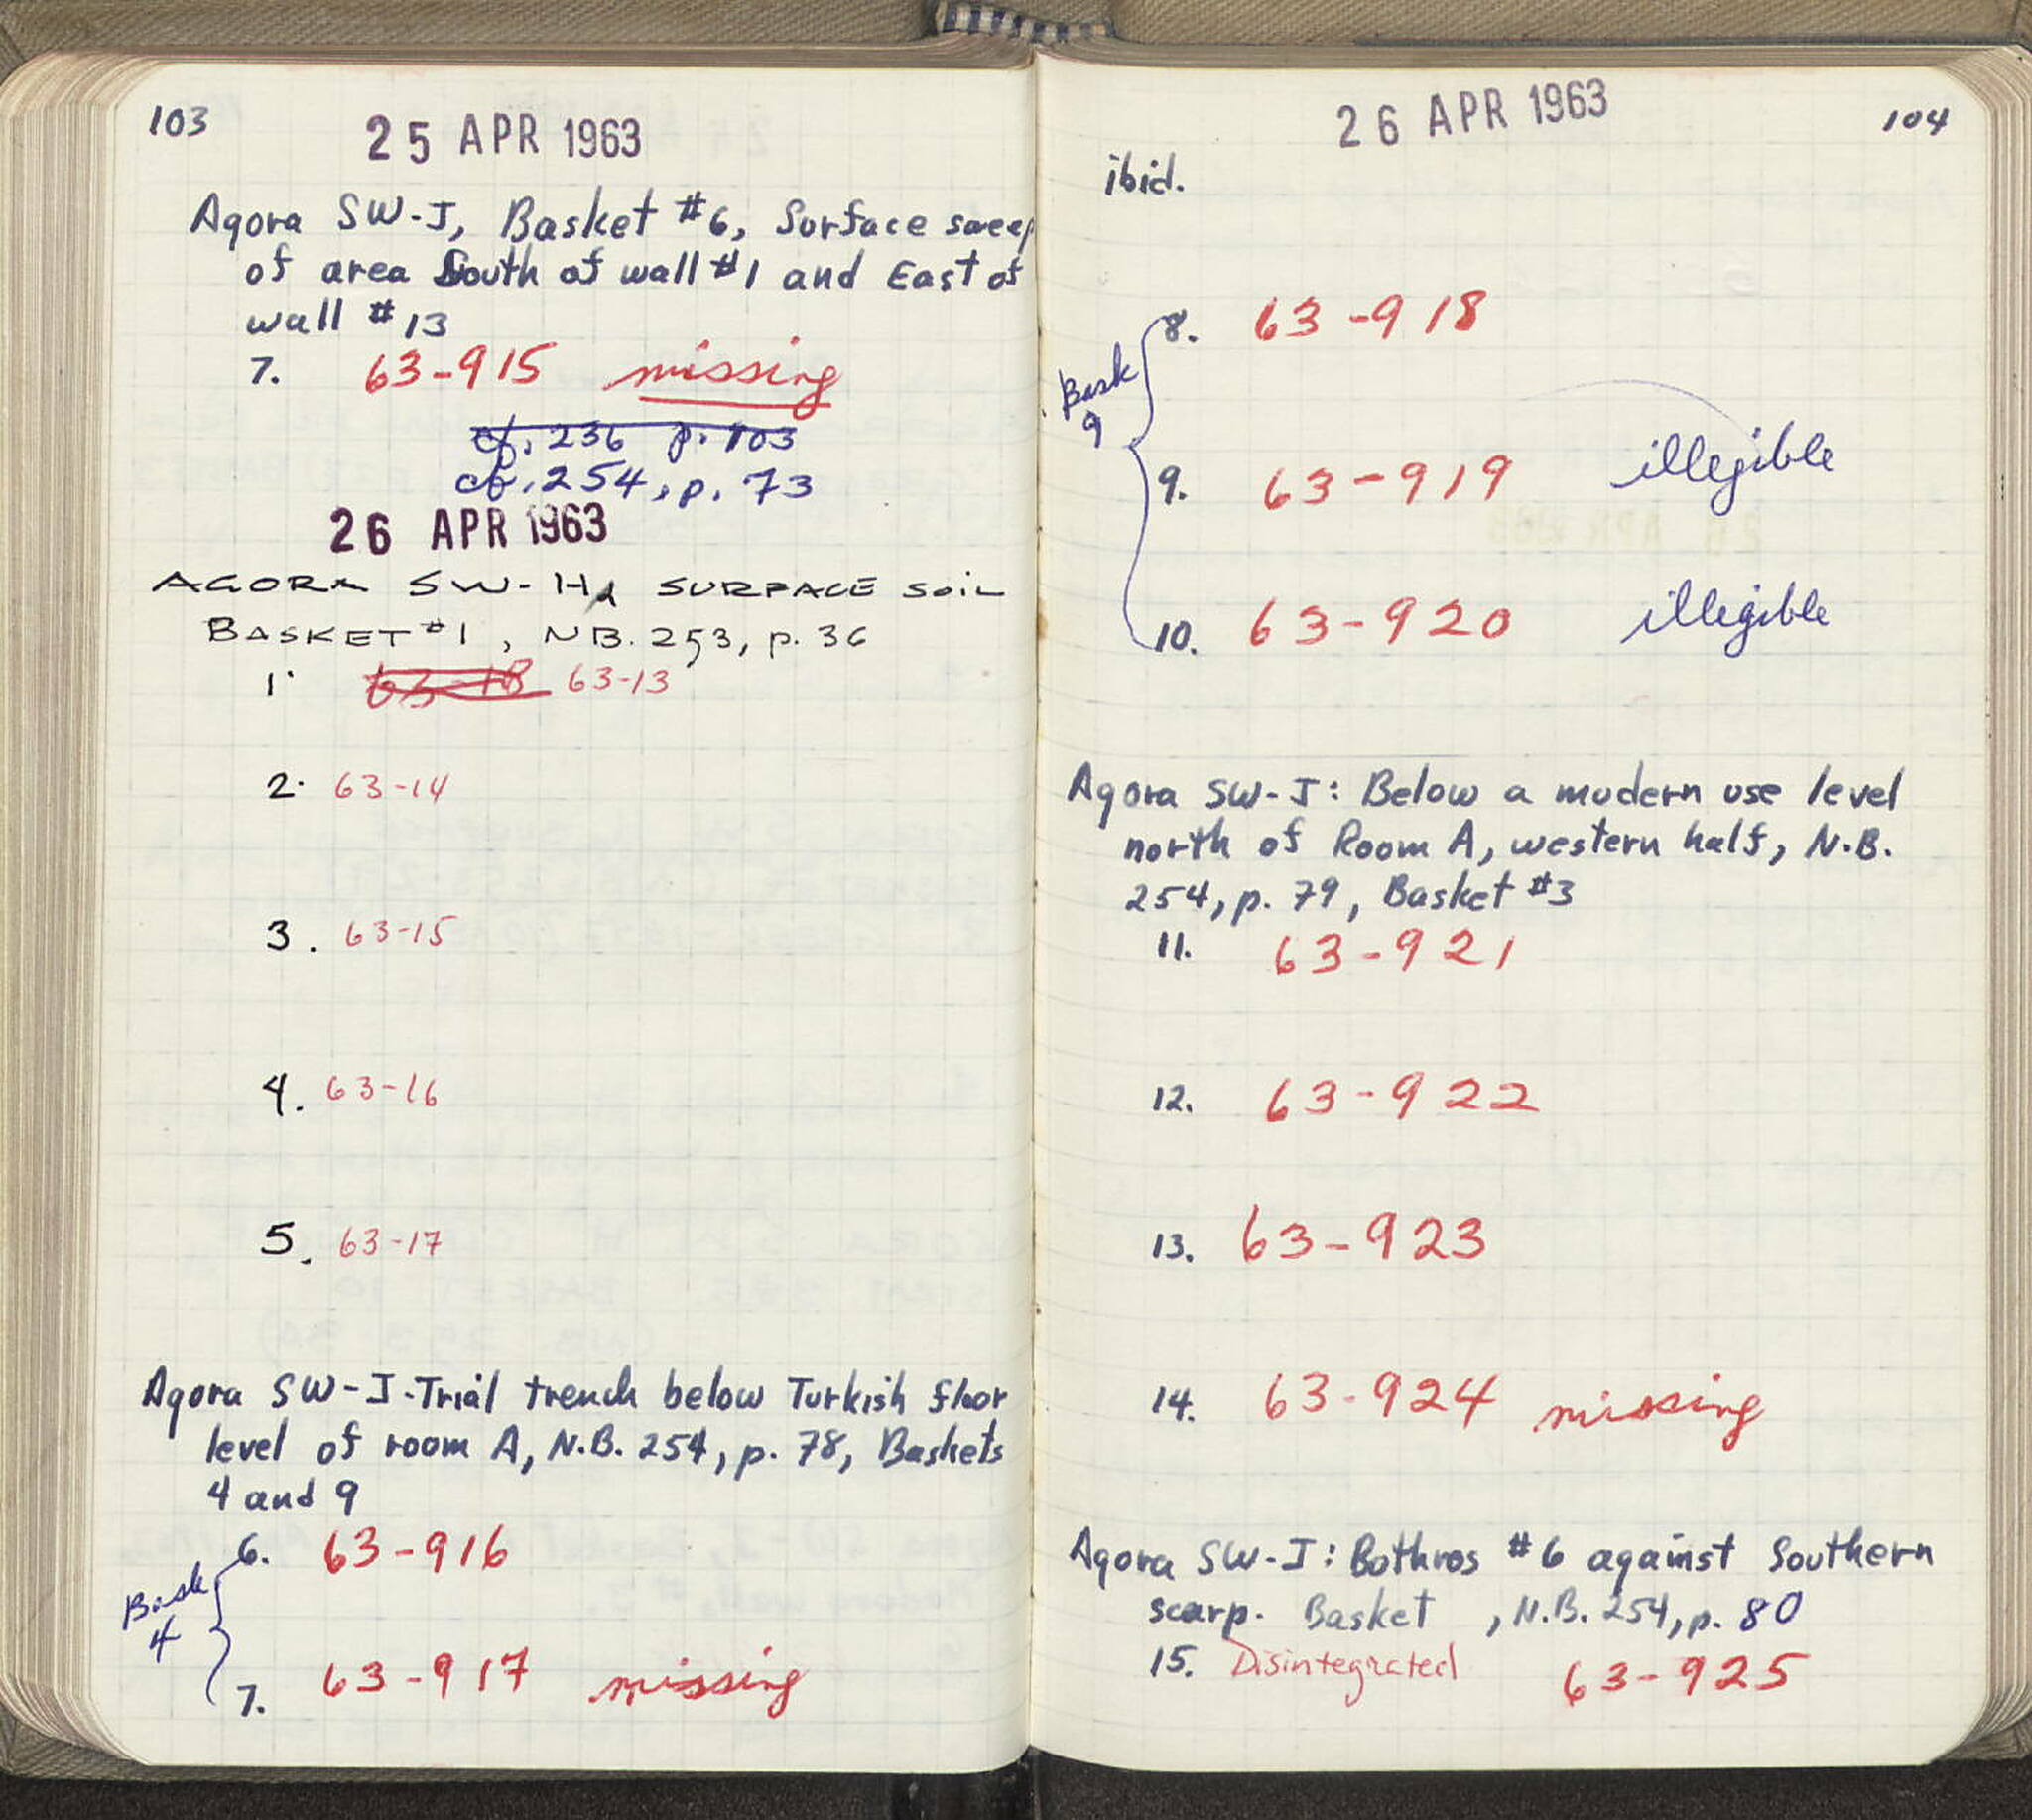 103
25 APR 1963
Agora SW-I, Basket #6, Surface sweep
of area South of wall #1 and East of
wall #13
7. 63-915 missing
cf. 236 p. 103
cf. 254, p. 73
26 APR 1963
AGORA SW-H, SURFACE SOIL
BASKET #1, NB. 253, p. 36
1. 63-18 63-13
2. 63-14
3. 63-15
4. 63-16
5. 63-17
Agora SW-I-Trial trench below Turkish floor
level of room A, N.B. 254, p. 78, Baskets
4 and 9
Bask 4
6. 63-916
7. 63-917 missing
26 APR 1963
104
ibid.
Bask 9
8. 63-918
9. 63-919 illegible
10. 63-920 illegible
Agora SW-I: Below a modern use level
north of Room A, western half, N.B.
254, p. 79, Basket #3
11. 63-921
12. 63-922
13. 63-923
14. 63-924 missing
Agora SW-I: Bothros #6 against Southern
scarp. Basket , N.B. 254, p. 80
15. Disintegrated 63-925